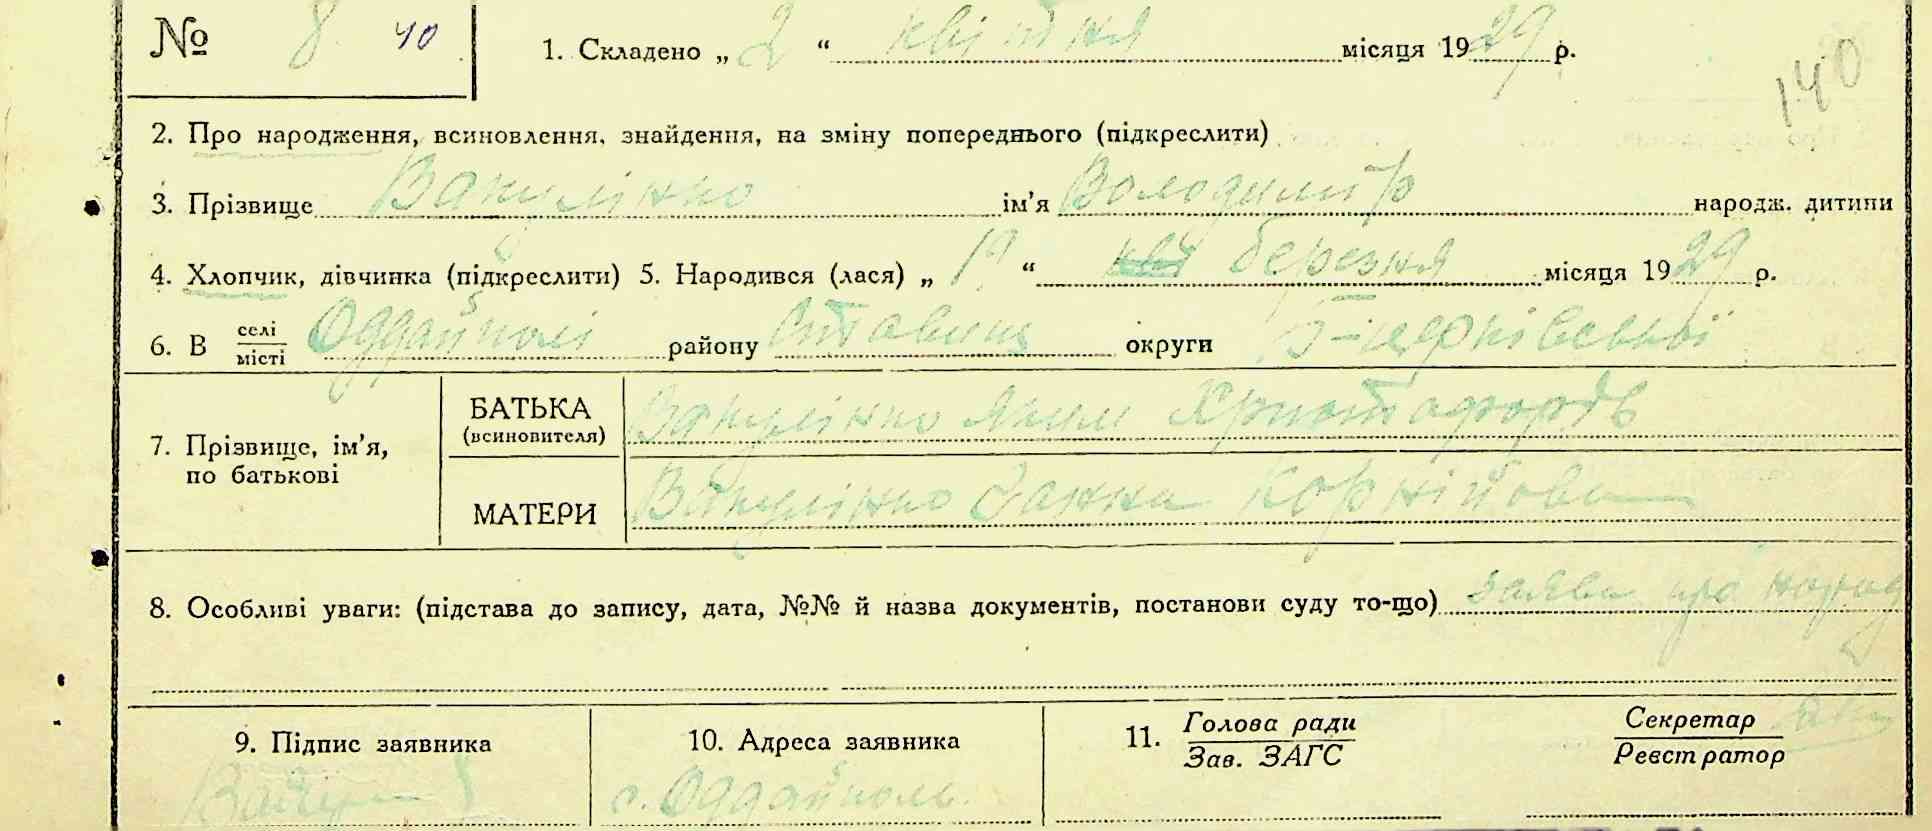 № 8 40
1. Складено „ 2 “ квітня місяця 1929 р.
140
2. Про народження, всиновлення, знайдення, на зміну попереднього (підкреслити)
3. Прізвище Вакулінко ім’я Володимір народж. дитини
4. Хлопчик, дівчинка (підкреслити) 5. Народився (лася) „ 19 “ березня місяця 1929 р.
6. В селі/місті Оддайполі району Ставищ округи Б-Церківської
7. Прізвище, ім’я, по батькові
БАТЬКА (всиновителя) Вакулінко Яким
МАТЕРИ Вакулінко Ганна Корнійовна
8. Особливі уваги: (підстава до запису, дата, №№ й назва документів, постанови суду то-що) заява про народ
9. Підпис заявника
10. Адреса заявника
с. Оддайполь.
11. Голова ради
Зав. ЗАГС
Секретар
Реєстратор